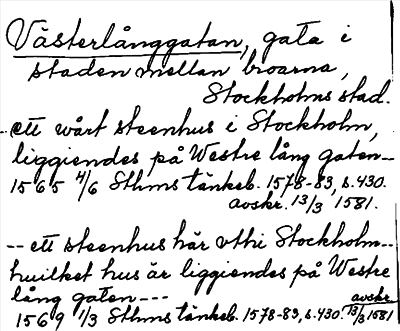 Västerlånggatan, gata i
staden mellan broarna,
Stockholms stad.
-ett wårt steenhus i Stockholm,
liggiendes på Westre lång gaten--
1565 4/6 Sthms tänkeb. 1578-83, s. 430.
avskr. 13/3 1581.
-- ett steenhus här vthi Stockholm--
huilket hus är liggiendes på Westre
lång gaten ---
1569 1/3 Sthms tänkeb. 1578-83, s. 430. avskr. 13/3 1581